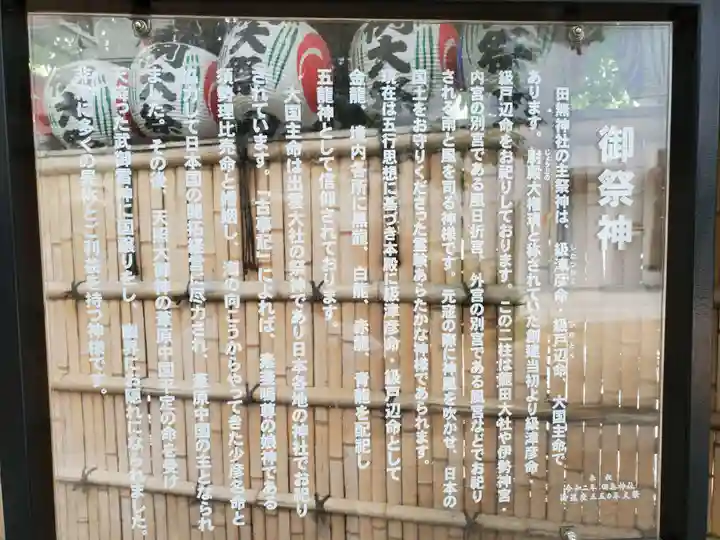 御祭神
田無神社の主祭神は、級津彦命・級戸辺命、大国主命で
あります。尉殿大権現と称されていた創建当初より級津彦命・
級戸辺命をお祀りしております。この二柱は龍田大社や伊勢神宮・
内宮の別宮である風日祈宮、外宮の別宮である風宮などでお祀り
される雨と風を司る神様です。元寇の際に神風を吹かせ、日本の
国土をお守りくださった霊験あらたかな神様であられます。
現在は五行思想に基づき本殿に級津彦命・級戸辺命として
金龍、境内各所に黒龍、白龍、赤龍、青龍を配祀し
五龍神として信仰されております。
大国主命は出雲大社の祭神であり日本各地の神社でお祀り
されています。「古事記」によれば、素戔嗚尊の娘神である
須勢理比売命と結婚し、海の向こうからやってきた少彦名命と
協力して日本国の開拓経営に尽力され、葦原中国の主となられ
ました。その後、天照大御神の葦原中国平定の命を受け
武御雷神に国譲りをし、
お隠れになられました。
非常に多くの異称とご利益を持つ神様です。
令和二年 田無神社